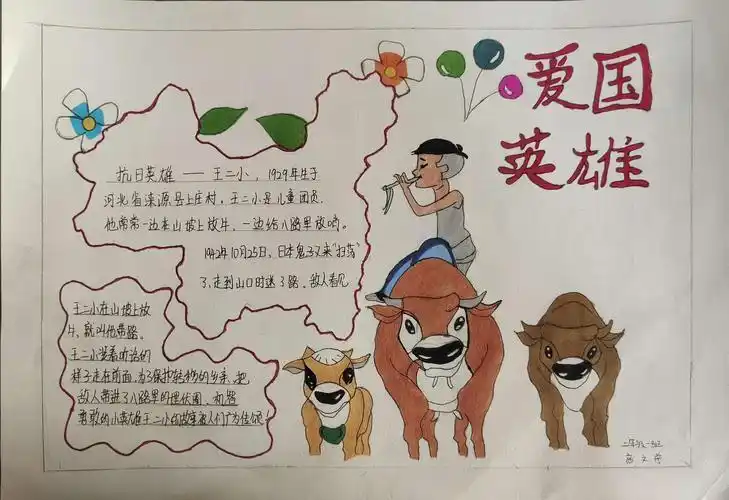 爱国
英雄
抗日英雄——王二小，1929年生于
河北省涞源县上庄村，王二小是儿童团员，
他常常一边在山坡上放牛，一边给八路军放哨。
1942年10月25日，日本鬼子又来"扫荡"
了，走到山口时迷了路，敌人看见
王二小在山坡上放
牛，就叫他带路。
王二小装着听话的
样子走在前面，为了保护转移的乡亲，把
敌人带进了八路军的埋伏圈，机智
勇敢的小英雄王二小的故事被人们广为传颂！